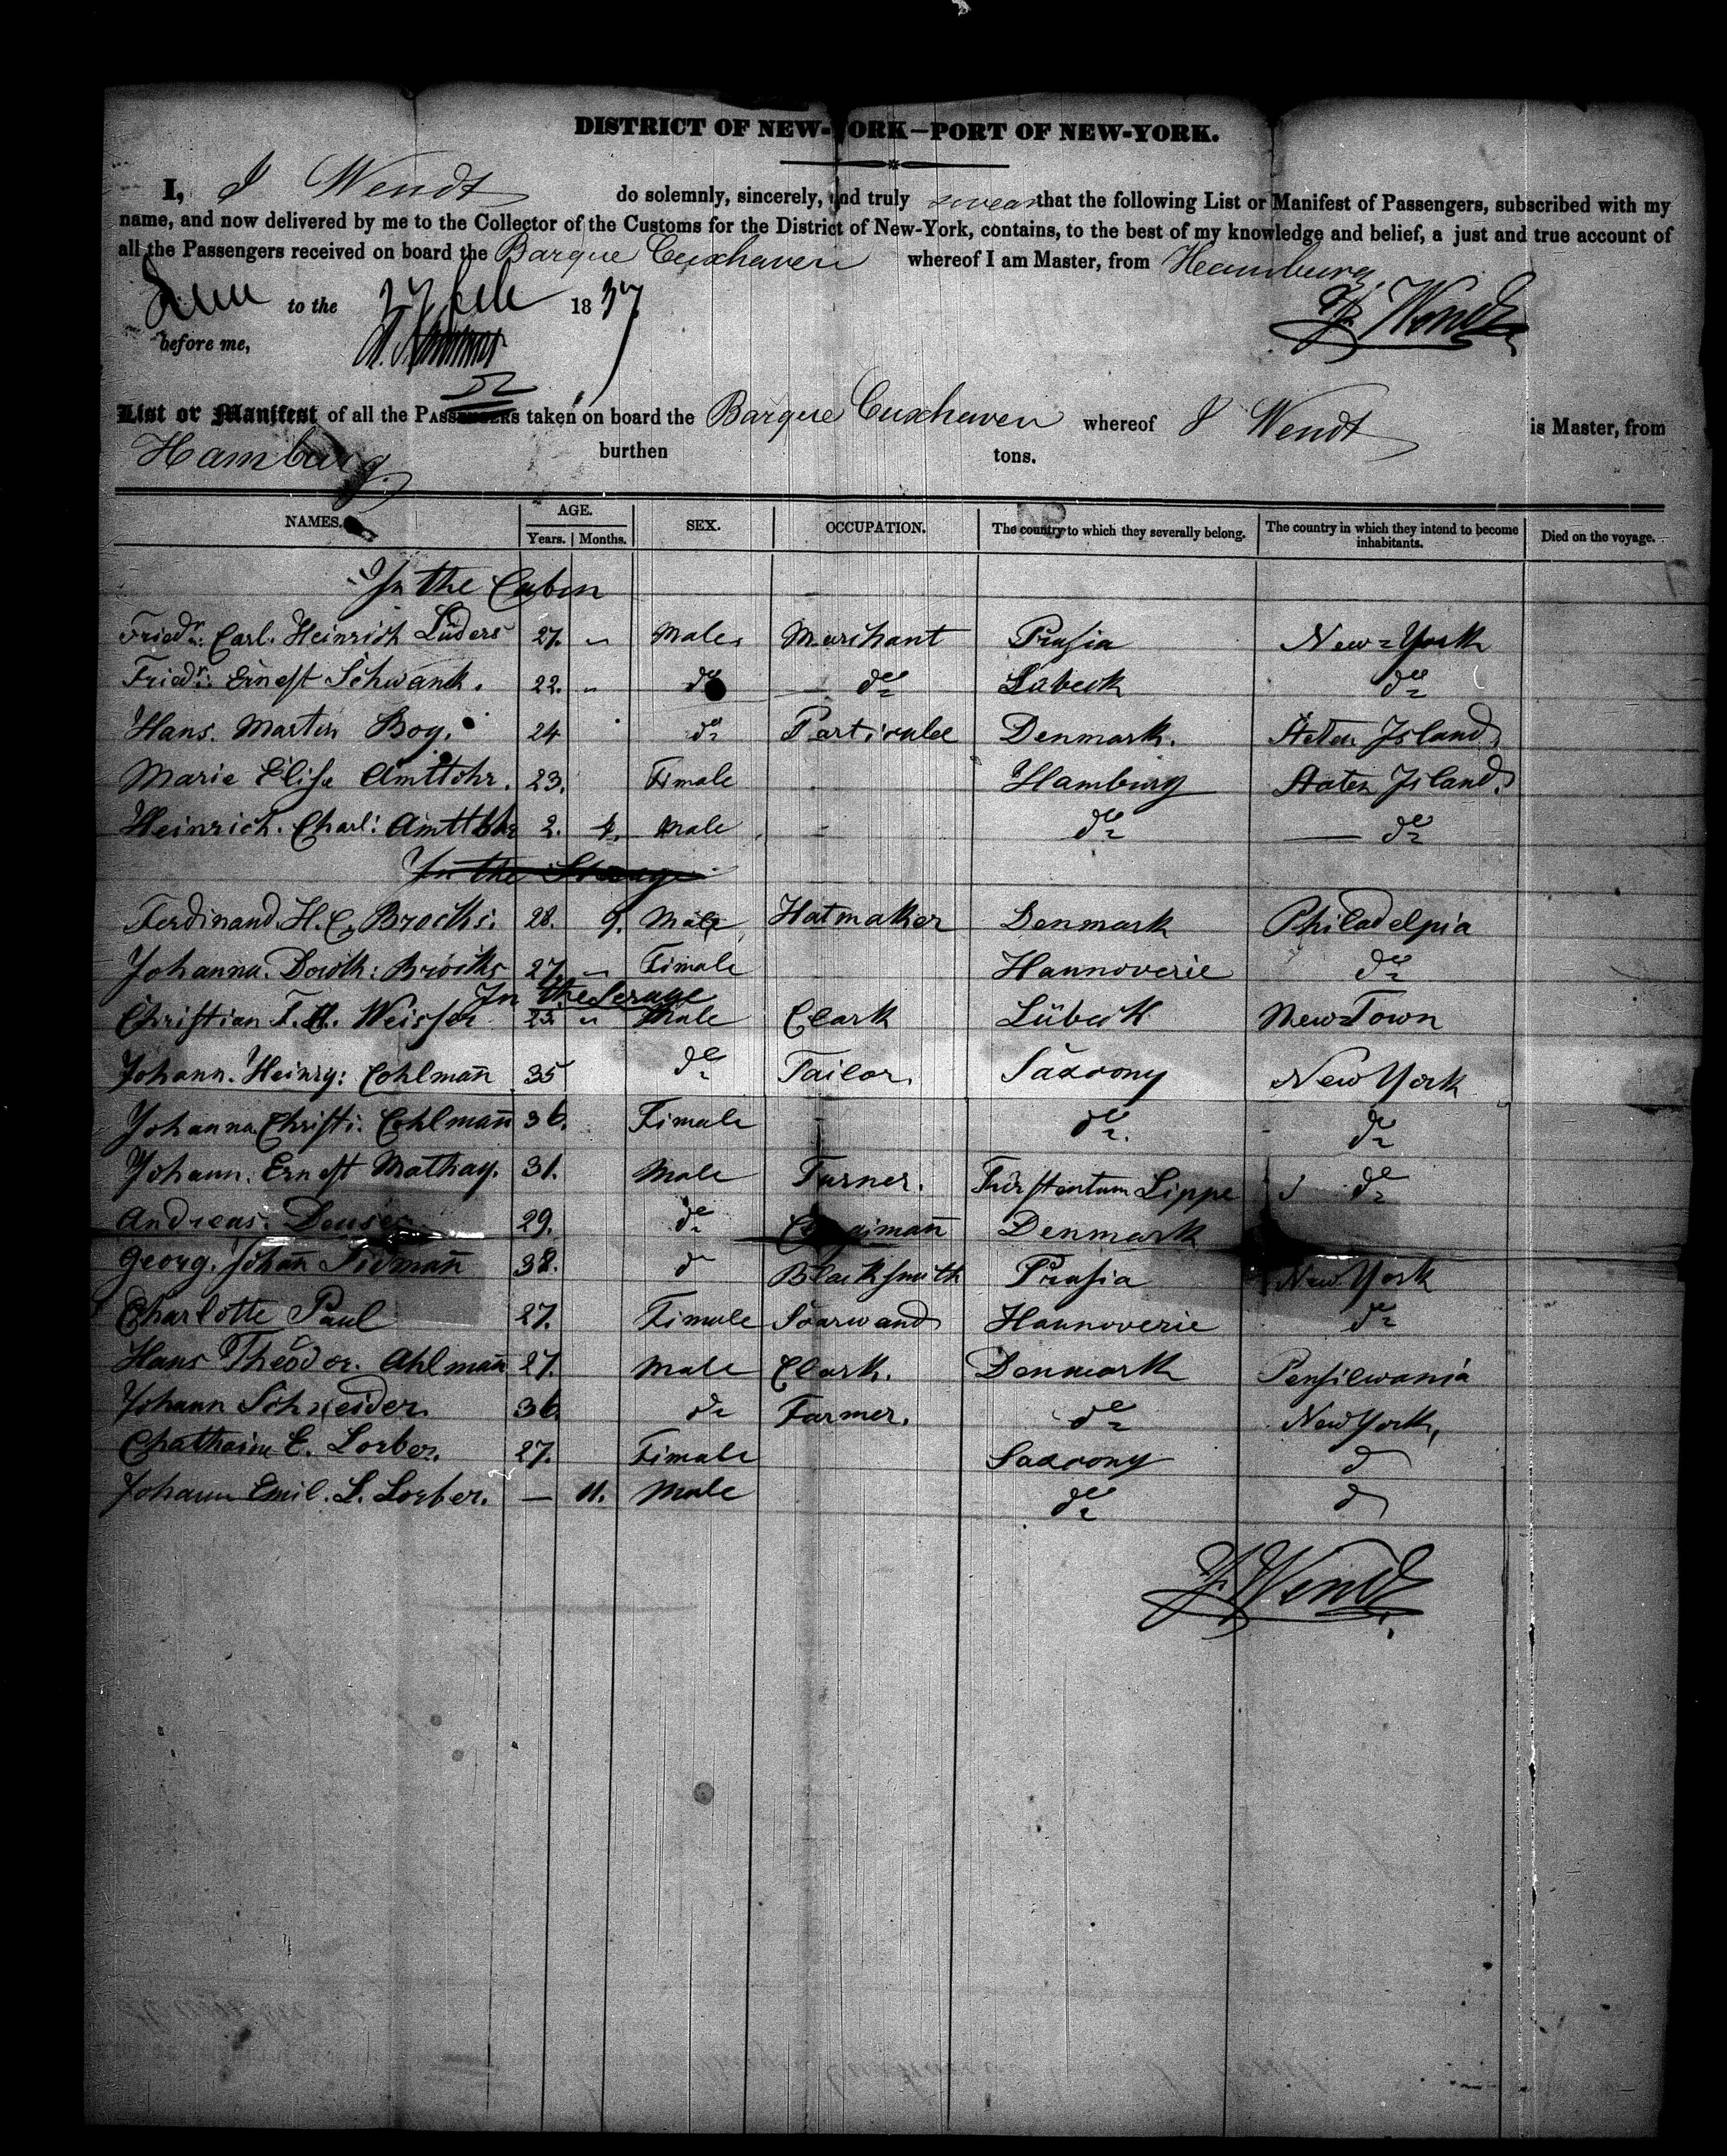 DISTRICT OF NEW-YORK—PORT OF NEW-YORK.
I, J Wendt do solemnly, sincerely, and truly swear that the following List or Manifest of Passengers, subscribed with my
name, and now delivered by me to the Collector of the Customs for the District of New-York, contains, to the best of my knowledge and belief, a just and true account of
all the Passengers received on board the Barque Cuxhaven whereof I am Master, from Hamburg
to the 27 1837 J. Wendt
before me,
52
List or Manifest of all the PASSENGERS taken on board the Barque Cuxhaven whereof J Wendt is Master, from
Hamburg burthen tons.
NAMES. AGE. Years. Months. SEX. OCCUPATION. The country to which they severally belong. The country in which they intend to become inhabitants. Died on the voyage.
In the Cabin
Friedr: Carl. Heinrich Lüders 27. " Male Marchant Prusia New=York
Friedr: Ernest Schwanck. 22. " do do Lübeck do
Hans. Martin Boy. 24 do Particulee Denmark. Staten Island
Marie Elise Amttohr. 23. Fimale Hamburg Staten Island.
Heinrich. Charl: Amttohr 2. 4. Male do do
In the Steerage
Ferdinand. H. C. Brocks: 28. 9. Male Hatmaker Denmark Philadelpia
Johanna. Doroth: Brocks 27. " Fimale Hannoverie do
In the Serage
Christian F. H. Weisser 25. " Male Clark Lübeck New=Town
Johann. Heinry: Cohlman̄ 35 do Tailor. Saxxony New York
Johanna Christi. Cohlman̄ 36. Fimale do. do
Johann. Ernest Mathay. 31. Male Turner. Fürstentum Lippe do
Andreas. 29. do Denmark
Georg. Johan̄ 38. do Blacksmith Prusia New York
Charlotte Paul 27. Fimale Soarwand Hannoverie do
Hans Theodor. Ahlman̄ 27. Male Clark. Denmark Pensilwania
Johann Schneider. 36. do Farmer. do New York,
Chatharin E. Lorber. 27. Fimale Saxxony do
Johann Emil. L. Lorber. — 11. Male do do
J. Wendt